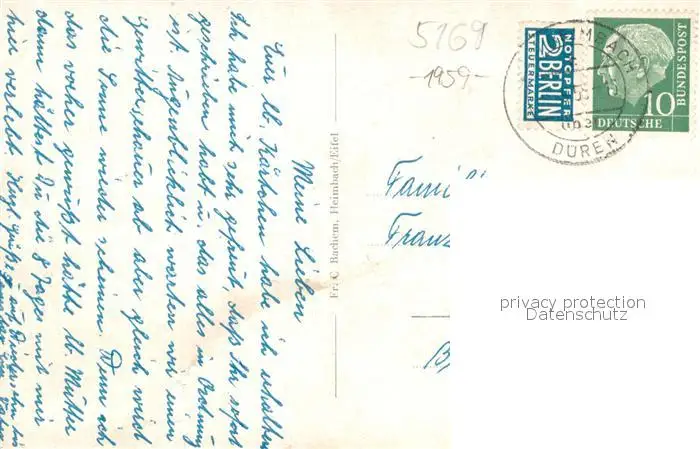 Meine Lieben
Eure lb. Kärtchen habe ich erhalten
Ich habe mich sehr gefreut, daß Ihr sofort
geschrieben habt u. das alles in Ordnung
ist. Augenblicklich warten wir einen
ab aber gleich wird
die Sonne wieder scheinen. Wenn ich
das vorher gewußt hätte lb. Mutter
dann hättest Du die 8 Tage mit mir
hier verlebt.
Fr. C. Bachem, Heimbach/Eifel
5169
-1959-
Fami
Franz
NOTOPFER
2 BERLIN
STEUERMARKE
DÜREN
10
DEUTSCHE
BUNDESPOST
privacy protection
Datenschutz